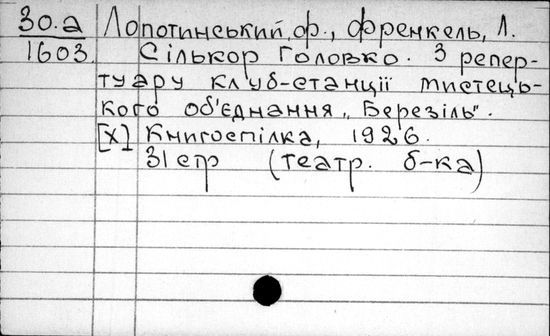 30.а Лопотинський, Ф., Френкель, Л.
1603. Сількор Головко. З репер-
туару клуб-станції мистець-
кого об'єднання „Березіль".
[Х] Книгоспілка, 1926.
31 стр (театр. б-ка)